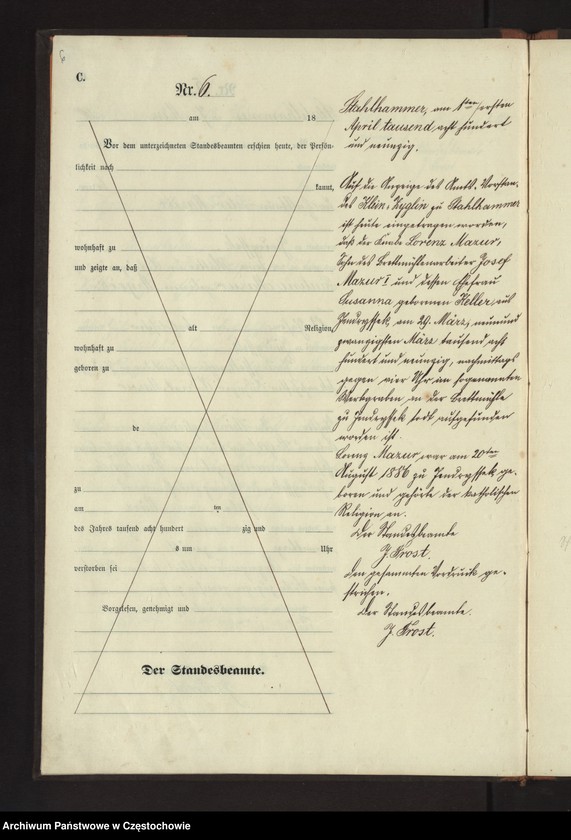 6
C.
Nr. 6.
am 18
Vor dem unterzeichneten Standesbeamten erschien heute, der Persön-
lichkeit nach
kannt,
wohnhaft zu
und zeigte an, daß
alt Religion,
wohnhaft zu
geboren zu
de
zu
am ten
des Jahres tausend acht hundert zig und
s um Uhr
verstorben sei
Vorgelesen, genehmigt und
Der Standesbeamte.
Stahlhammer, am 1ten ersten
April tausend acht hundert
und neunzig.
Auf die Anzeige des Amts-Vorstan-
des Klein-Zyglin zu Stahlhammer
ist heute eingetragen worden,
daß der Knabe Lorenz Mazur,
Sohn des Brettmühlenarbeiter Josef
Mazur I und dessen Ehefrau
Susanna geborenen Heller, aus
Jendryssek, am 29. März, neunund
zwanzigsten März tausend acht
hundert und neunzig, nachmittags
gegen vier Uhr im sogenannten
Werkgraben in der Brettmühle
zu Jendryssek todt aufgefunden
worden ist.
Lorenz Mazur war am 20ten
August 1886 zu Jendryssek ge-
boren und gehörte der katholischen
Religion an.
Der Standesbeamte
J. Frost.
Den gesammten Vordruck ge-
strichen.
Der Standesbeamte.
J. Frost.
Archiwum Państwowe w Częstochowie